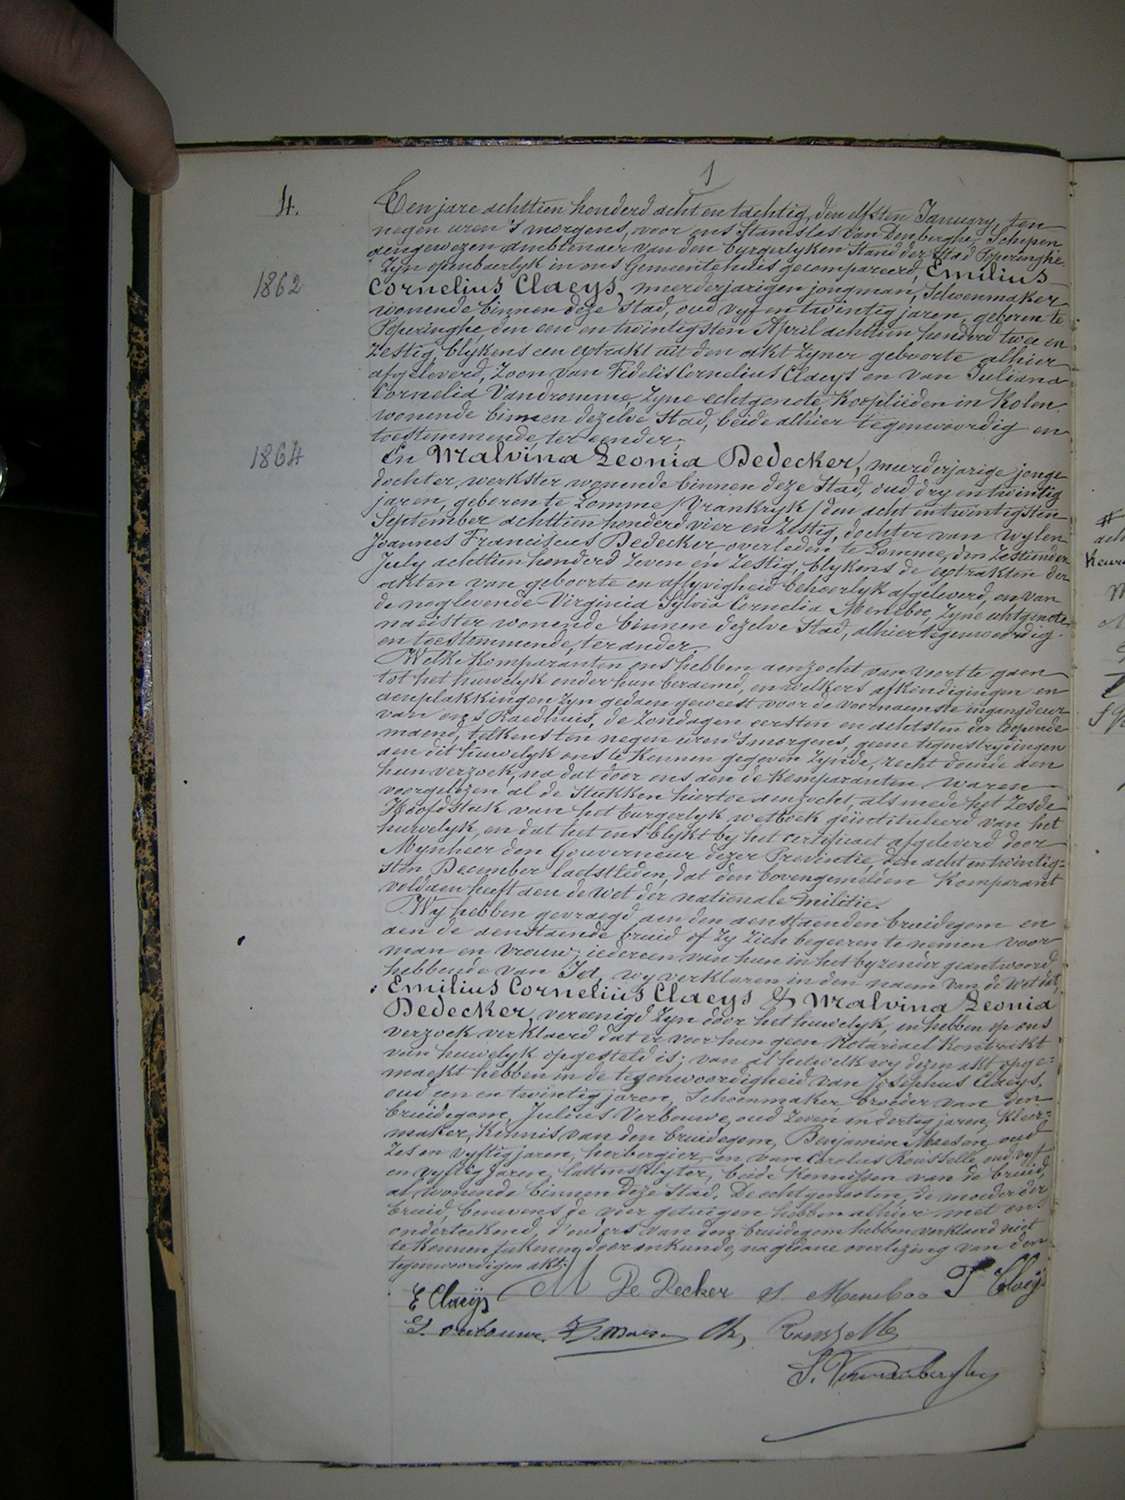 1
4.
Ten jare achttien honderd acht en tachtig, den elfsten January, ten
negen uren 's morgens, voor ons Stanislas Van Denberghe, Schepen
aengewezen ambtenaer van den burgerlyken Stand der Stad Poperinghe
Zyn openbaerlyk in ons Gemeentehuis gecompareerd, Emilius
1862
Cornelius Claeys, meerderjarigen jongman, Schoenmaker
wonende binnen deze Stad, oud vyf en twintig jaren, geboren te
Poperinghe, den een en twintigsten April achttien honderd twee en
Zestig, blykens een extrakt uit den akt zyner geboorte alhier
afgeleverd, Zoon van Fidelis Cornelius Claeys en van Juliana
Cornelia Vandromme, zyne echtgenote, Kooplieden in Kolen
wonende binnen dezelve Stad, beide alhier tegenwoordig en
toestemmende, ter eender;
1864
En Malvina Leonia Dedecker, meerderjarige jonge
dochter, werkster wonende binnen deze Stad, oud dry en twintig
jaren, geboren te Lomme / Vrankryk / den acht en twintigsten
September achttien honderd vier en Zestig, dochter van wylen
Joannes Franciscus Dedecker overleden te Lomme, den Zestienden
July achttien honderd Zeven en Zestig, blykens de extrakten der
akten van geboorte en aflyvigheid behoorlyk afgeleverd, en van
de noglevende Virginia Sylvia Cornelia Meneboo, zyne echtgenote
naeister wonende binnen dezelve Stad, alhier tegenwoordig
en toestemmende, ter ander.
Welke Komparanten ons hebben aenzocht van voort te gaen
tot het huwelyk onder hun beraemd, en welkers afkondigingen en
aenplakkingen zyn gedaen geweest voor de voornaemste ingangdeur
van ons Raedhuis, de Zondagen eersten en achtsten der loopende
maend, telkens ten negen uren 's morgens, geene tegenstrydingen
aen dit huwelyk ons te Kennen gegeven zynde, recht doende aen
hun verzoek, na dat door ons aen de Komparanten waren
voorgelezen al de Stukken hiertoe aenzocht, als mede het Zesde
Hoofdstuk van het burgerlyk wetboek geïntituleerd van het
huwelyk, en dat het ons blykt by het certificaet afgeleverd door
Mynheer den Gouverneur dezer Provintie, den acht en twintig-
sten December laetstleden, dat den bovengemelden Komparant
voldaen heeft aen de wet der nationale Militie.
Wy hebben gevraegd aen den aenstaenden bruidegom en
aen de aenstaende bruid of zy zich begeeren te nemen voor
man en vrouw; iedereen van hun in het byzonder geantwoord
hebbende van Ja, wy verklaren in den naem van de wet dat
Emilius Cornelius Claeys & Malvina Leonia
Dedecker, vereenigd zyn door het huwelyk, en hebben op ons
verzoek verklaerd dat er voor hun geen Notariael Kontrakt
van huwelyk opgesteld is; van al hetwelk wy dezen akt opge-
maekt hebben in de tegenwoordigheid van Josephus Claeys,
oud een en twintig jaren, Schoenmaker, broeder van den
bruidegom, Julius Verbouwe, oud Zeven en dertig jaren, Kleer-
maker, Kennis van den bruidegom, Benjamin Meeson, oud
Zes en vyftig jaren, herbergier en van Carolus Rousselle, oud vyf
en vyftig jaren, lattensplyter, beide Kennissen van de bruid,
al wonende binnen deze Stad. De echtgenooten, de moeder der
bruid, benevens de vier getuigen hebben alhier met ons
onderteekend, d'ouders van den bruidegom hebben verklaerd niet
te Konnen teekenen, door onkunde, na gedane overlezing van den
tegenwoordigen akt.
E Claeijs M De Decker S Meneboo J Claeijs
Ch. Rousselle
S. Vandenberghe